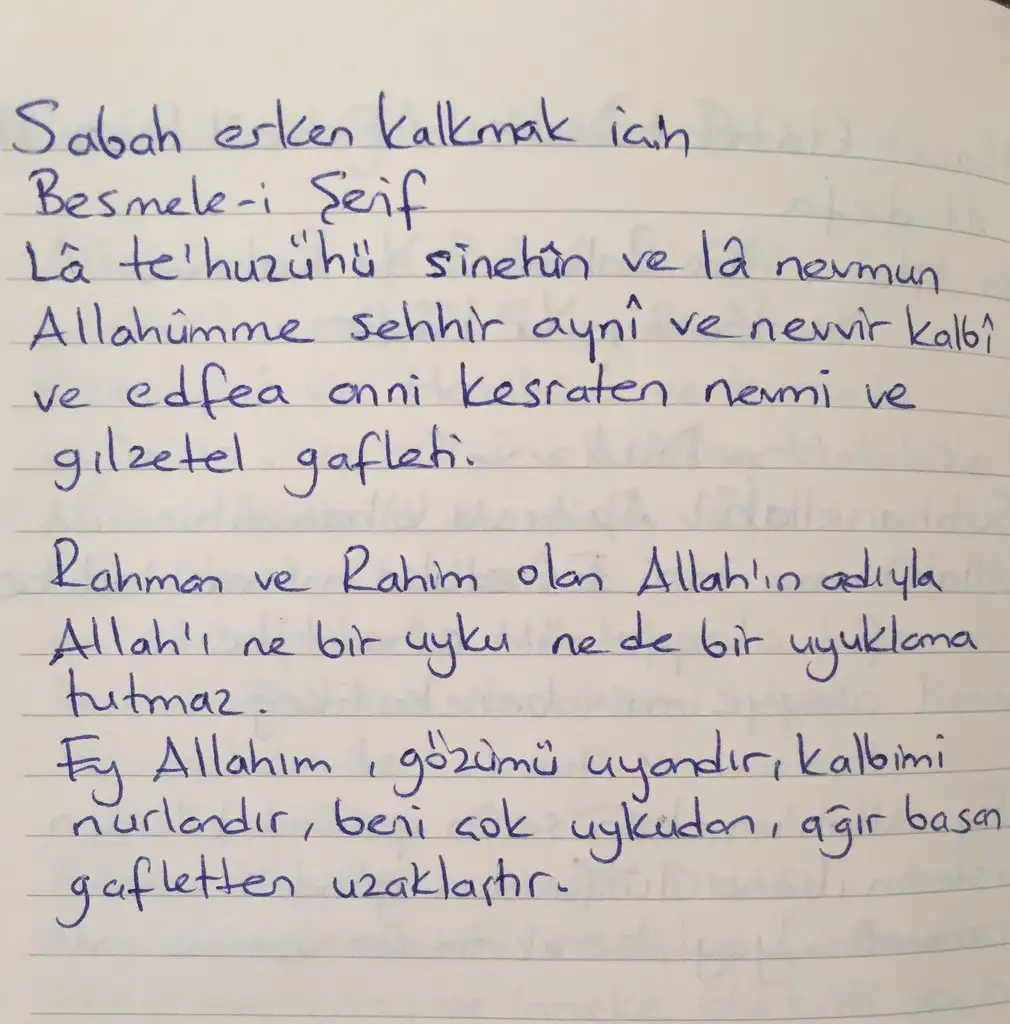 Sabah erken kalkmak için
Besmele-i Şerif
Lâ te'huzühü sinetûn ve lâ nevmun
Allahûmme sehhir aynî ve nevvir kalbî
ve edfea anni kesraten nevmi ve
gılzetel gafleti.
Rahman ve Rahim olan Allah'ın adıyla
Allah'ı ne bir uyku ne de bir uyuklama
tutmaz.
Ey Allahım, gözümü uyandır, kalbimi
nurlandır, beni çok uykudan, ağır basan
gafletten uzaklaştır.